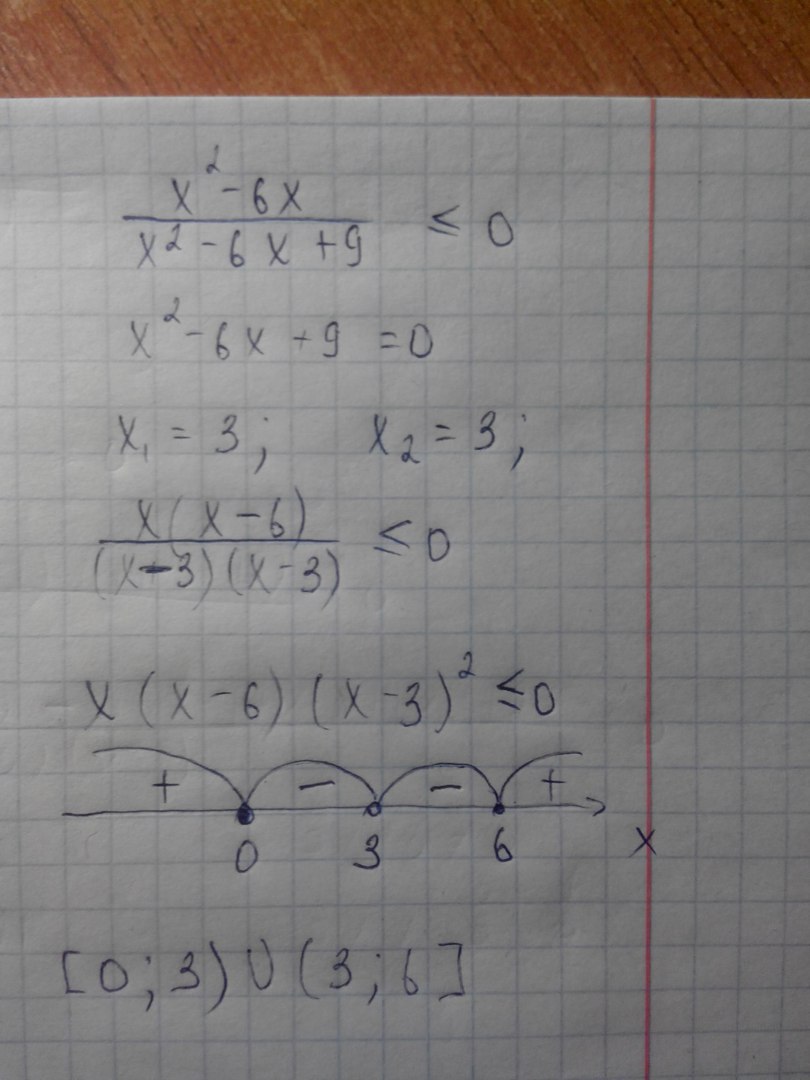 x² - 6x
x² - 6x + 9 ≤ 0
x² - 6x + 9 = 0
x₁ = 3; x₂ = 3;
x(x - 6)
(x - 3)(x - 3) ≤ 0
x(x - 6)(x - 3)² ≤ 0
+ − − +
0 3 6 x
[0; 3) ∪ (3; 6]